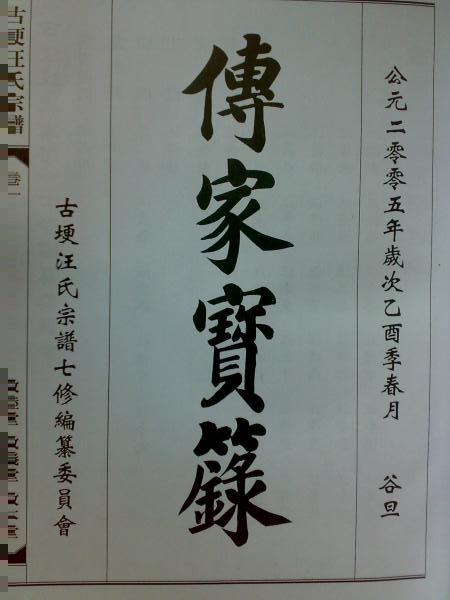 公元二零零五年歲次乙酉季春月 谷旦
傳家寶籙
古埂汪氏宗譜七修編纂委員會
古埂汪氏宗譜
卷一